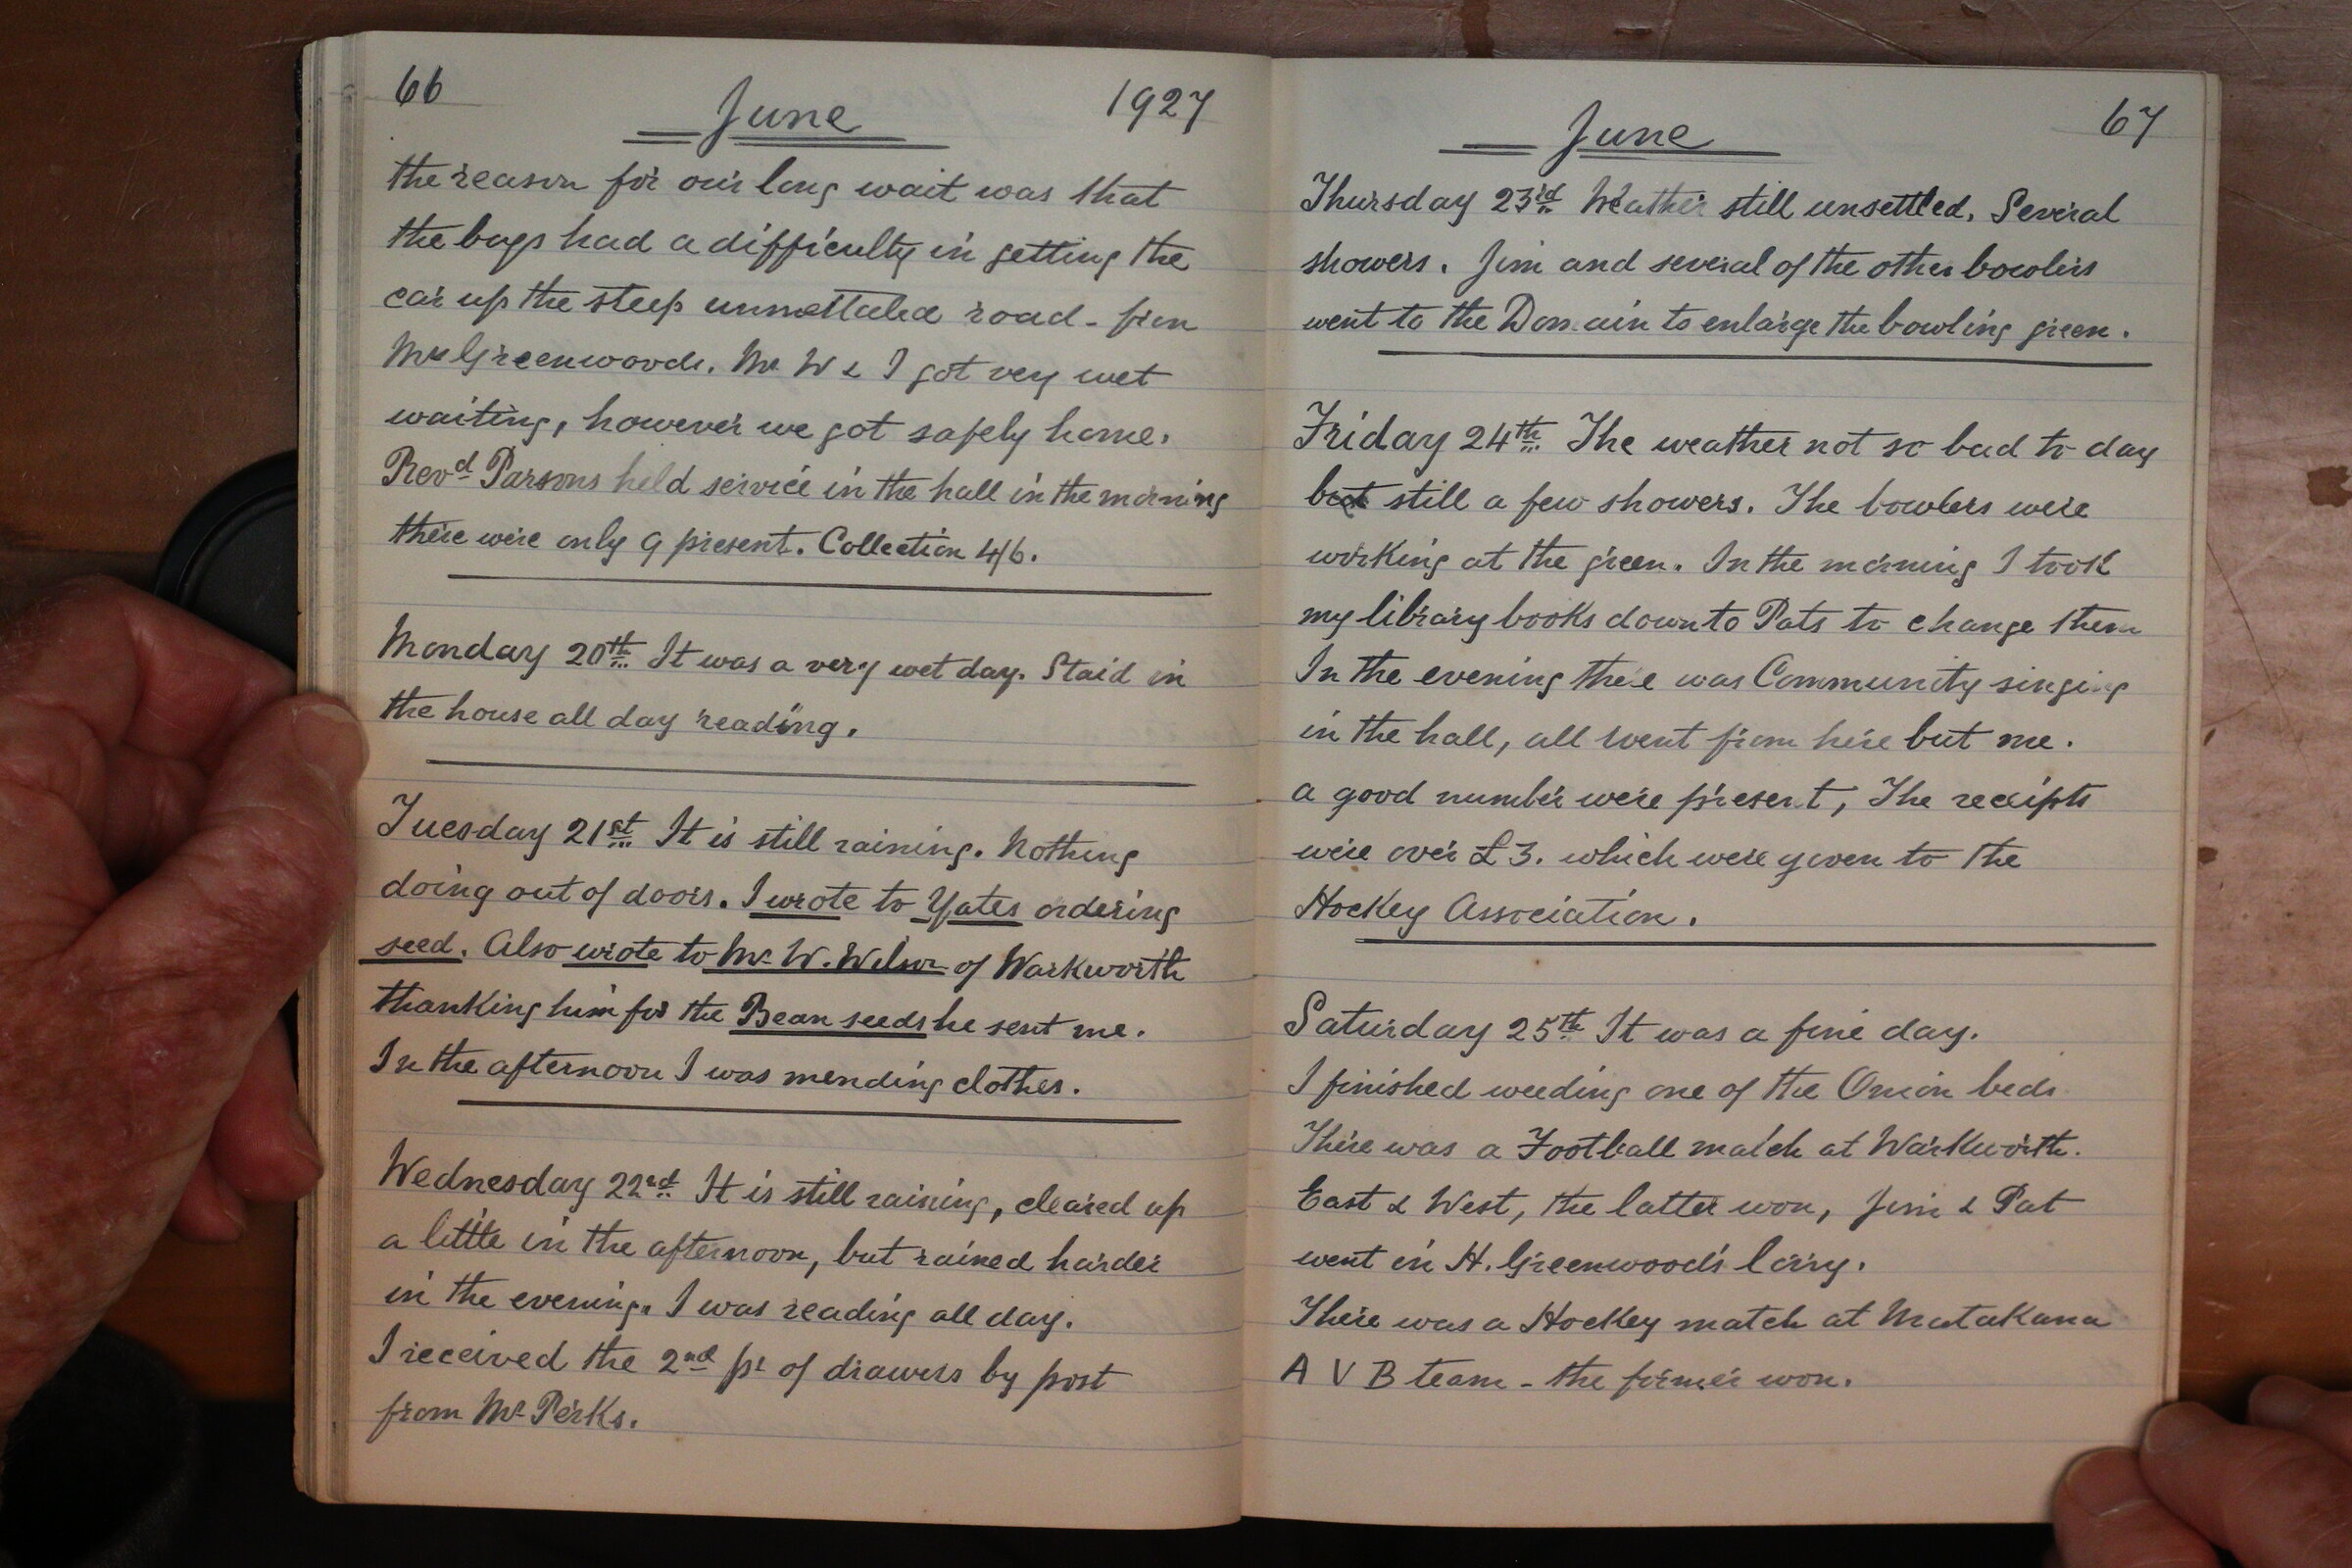 66
June
1927
the reason for our long wait was that
the boys had a difficulty in getting the
car up the steep unmettaled road - from
Mrs Greenwoods. Mr W & I got very wet
waiting, however we got safely home.
Revd Parsons held service in the hall in the morning
there were only 9 present. Collection 4/6.
Monday 20th It was a very wet day. Staid in
the house all day reading.
Tuesday 21st It is still raining. Nothing
doing out of doors. I wrote to Yates ordering
seed. Also wrote to Mr W. Wilson of Warkworth
thanking him for the Bean seeds he sent me.
In the afternoon I was mending clothes.
Wednesday 22nd It is still raining, cleared up
a little in the afternoon, but rained harder
in the evening. I was reading all day.
I received the 2nd pr of drawers by post
from Mr Perks.
67
June
Thursday 23rd Weather still unsettled. Several
showers. Jim and several of the other bowlers
went to the Domain to enlarge the bowling green.
Friday 24th The weather not so bad to day
but still a few showers. The bowlers were
working at the green. In the morning I took
my library books down to Pats to change them
In the evening there was Community singing
in the hall, all went from here but me.
a good number were present, The receipts
were over £3. which were given to the
Hockey Association.
Saturday 25th It was a fine day.
I finished weeding one of the Onion beds
There was a Football match at Warkworth.
East & West, the latter won, Jim & Pat
went in H. Greenwood's lorry.
There was a Hockey match at Matakana
A V B team - the former won.